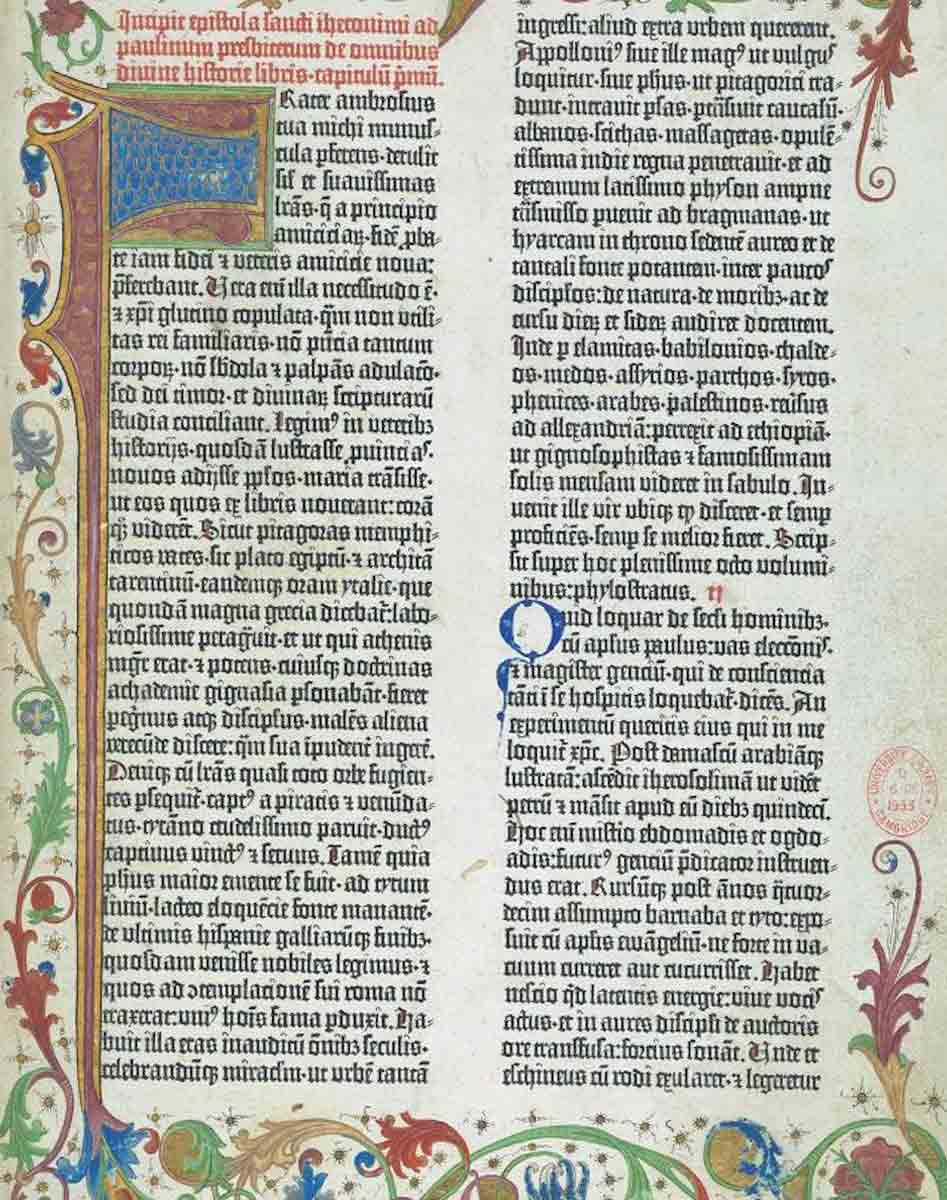 Incipit epistola sancti iheronimi ad
paulinum presbiterum de omnibus
divine historie libris·capitulū p̄mū.
Frater ambrosius
tua michi munus-
cula p̄ferens·detulit
sil' et suavissimas
lr̄as·q̄ a principio
amiciciaꝝ·fidē ꝓba-
te iam fidei ⁊ veteris amicicie nova:
p̄ferebant. Vera em̄ illa necessitudo ē·
⁊ xp̄i glutino copulata·q̄m non utili-
tas rei familiaris·nō p̄ncia tantum
corpoꝝ·nō sb̄dola ⁊ palpās adulaco·
sed dei timor·et divinaꝝ scripturarū
studia conciliant. Legimꝰ in veteribꝫ
historijs·quosdā lustrasse ꝓvinciaſ·
novos adijsse ppl̄os·maria trāsisse·
ut eos quos ex libris noverant: corā
qꝫ viderēt. Sicut pitagoras memphi-
ticos vates·sic plato egiptū·⁊ architā
tarentinū·eandemqꝫ oram ytalie·que
quondā magna grecia dicebat̄: labo-
riosissime peragͣvit·et ut qui athenis
mgr̄ erat·⁊ potens·cuiusqꝫ doctrinas
achademie gignasia ꝑsonabāt·fieret
ꝑegͥnus atqꝫ discipl̄us·malēs aliena
verecūde discere: q̄m sua īpudent̄ ingerē.
Deniqꝫ cū lr̄as quasi toto orbe fugien-
tes ꝑsequit̄·captꝰ a piratis ⁊ venūda-
tus·tyrāno crudelissimo paruit·ductꝰ
captivus vinctꝰ ⁊ servus. Tamē quia
ph̄us maior emente se fuit·ad tytum
liviū·lacteo eloquēcie fonte manantē·
de ultimis hispanie galliarūqꝫ finibꝫ·
quosdam venisse nobiles legimus·⁊
quos ad ꝯtemplacionē sui roma nō
traxerat: uniꝰ hoīs fama ꝑduxit. Ha-
buit illa etas inauditū ōnibꝫ seculis·
celebrandūqꝫ miracl̄m·ut urbē tantā
ingressi: aliud extra urbem quererent.
Apolloniꝰ sive ille magꝰ ut vulgus
loquitur·sive ph̄us·ut pitagorici tra-
dunt·intravit ꝑsas·ptn̄sivit caucasū·
albanos·scithas·massagetas·opulē-
tissima indie regna penetravit·et ad
extremum latissimo physon ampne
trāsmisso ꝑvenit ad bragmanas·ut
hyarcam in throno sedentē aureo et de
tantali fonte potantem·inter paucos
discipl̄os: de natura·de moribꝫ·ac de
cursu dieꝝ et sideꝝ audiret docentem.
Inde ꝑ elamitas·babilonios·chalde-
os·medos·assyrios·parthos·syros·
phenices·arabes·palestinos·reūsus
ad allexandriā: perrexit ad ethiopiā·
ut gignosophistas et famosissimam
solis mensam videret in sabulo. In-
venit ille vir ubiqꝫ qꝫ disceret·et semp̄
proficiēs·semp̄ se melior fieret. Scrip-
sit super hoc plenissime octo volumi-
nibus: phylostratus. II
Quid loquar de sec̄li hominibꝫ·
cū apl̄us paulus: vas elecconīs·
⁊ magister genciū·qui de consciencia
tāti ī se hospitis loquebat̄·dicēs. An
experimentū queritis eius qui in me
loquit̄ xp̄c. Post damascū arabiāqꝫ
lustratā: ascēdit iherosolimā ut vidēt
petrū ⁊ māsit apud eū diebꝫ quindecī.
Hoc em̄ mistio ebdomadis et ogdo-
adis: futurꝰ genciū p̄dicator instruen-
dus erat. Rursūqꝫ post ānos q̄tuor-
decim assumpto barnaba et tyto: expo-
suit cū apl̄is ewāgeliū·ne forte in va-
cuum curreret aut cucurrisset. Habet
nescio q̄d latentis energie: vive vociſ
actus·et in aures discipl̄i de auctoris
ore transfusa: forcius sonāt. Unde et
eschineus cū rodi exularet·⁊ legeretur
UNIVERSITY LIBRARY
1933
CAMBRIDGE